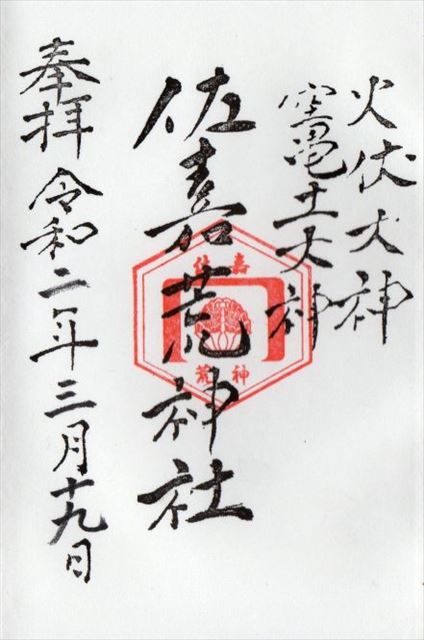 火伏大神
竃土大神
佐嘉荒神社
奉拝 令和二年三月十九日
佐嘉
荒神